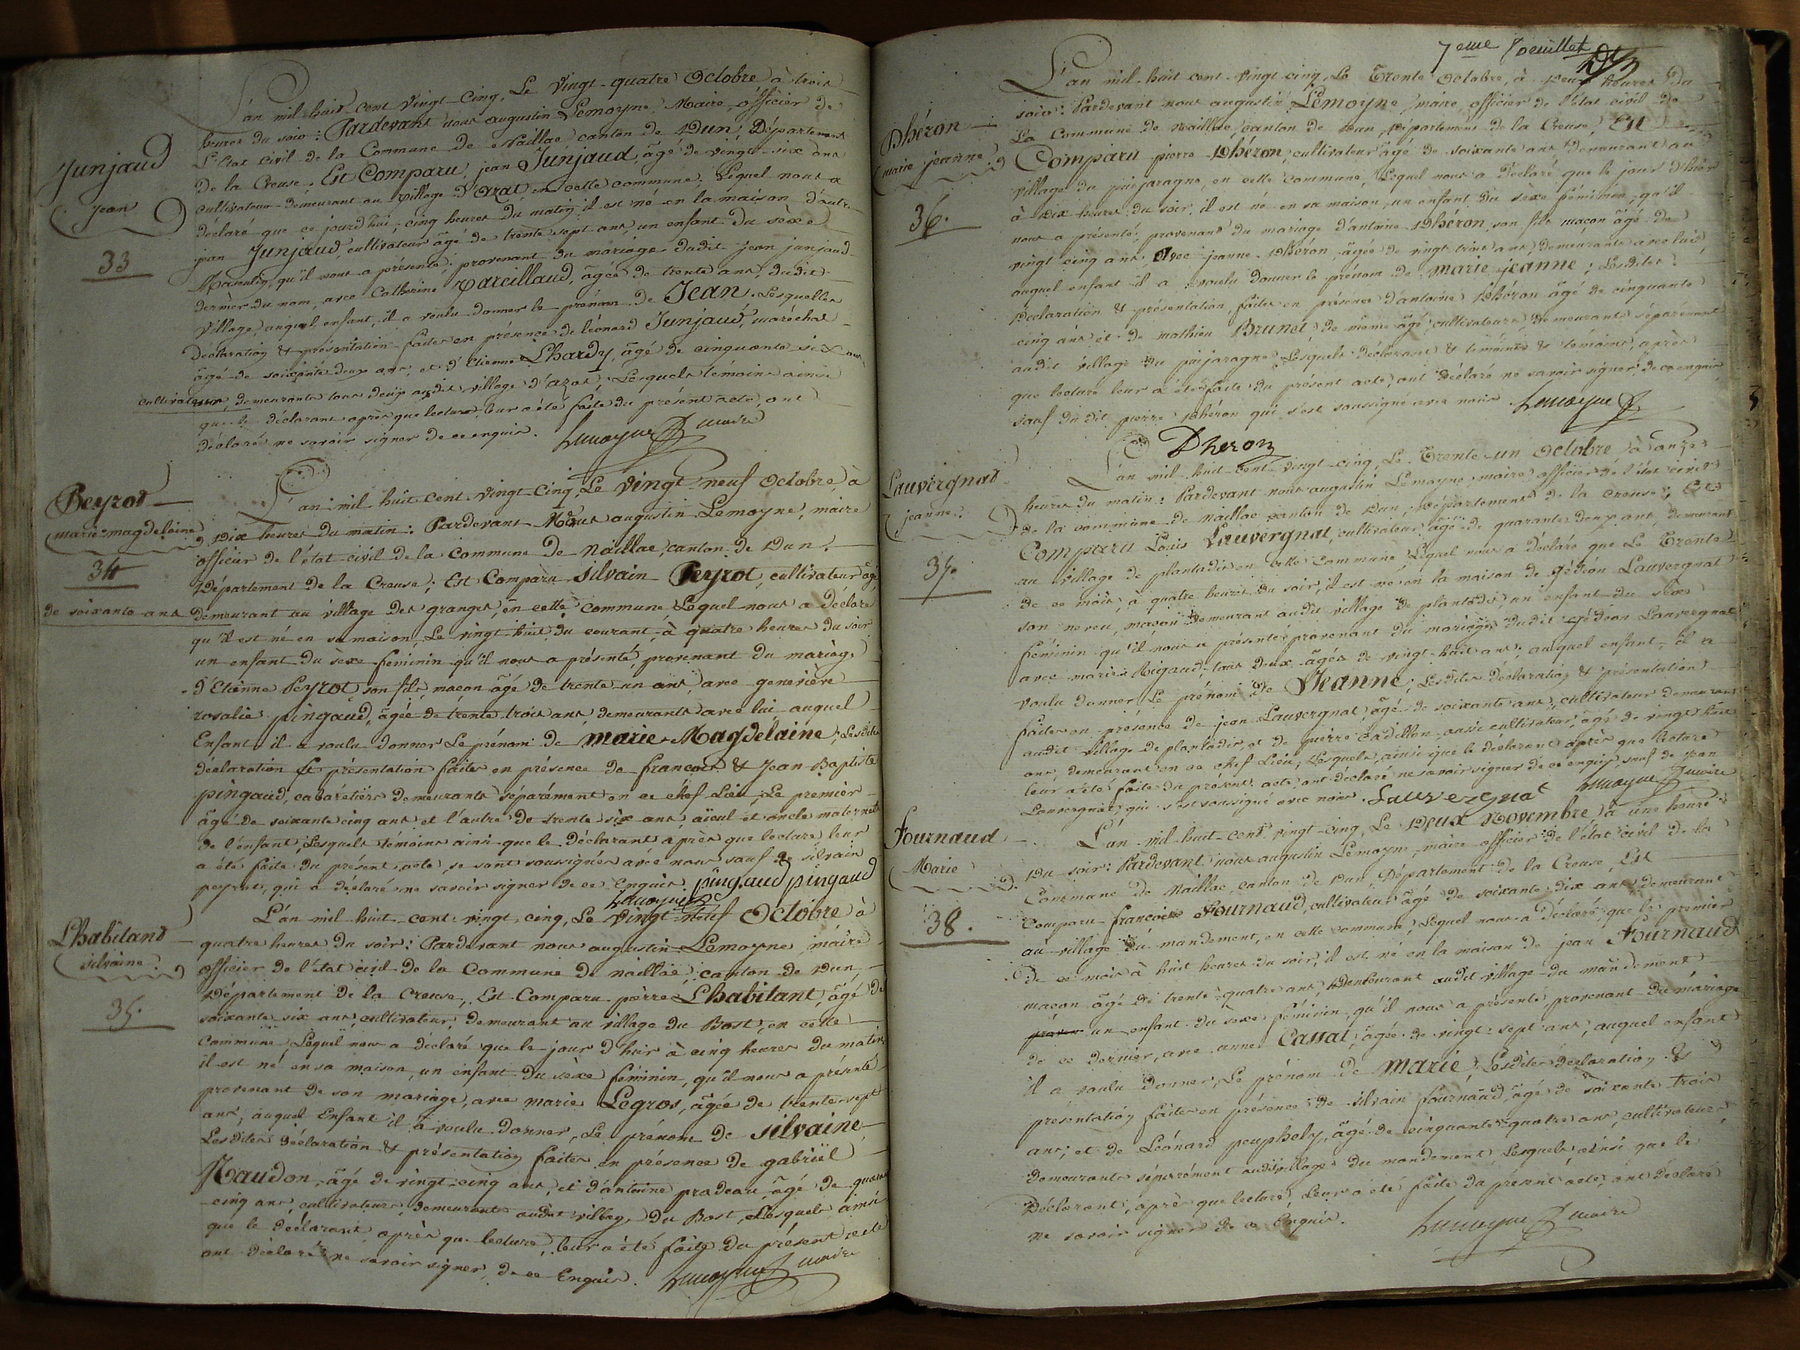 Junjaud
Jean
33
L'an mil huit cent vingt-cinq, Le vingt-quatre Octobre à trois
heures du soir : Pardevant nous augustin Lemoyne Maire, officier de
L'Etat civil de la Commune de Naillac, canton de Dun, Département
de la Creuse, Est Comparu, jean Junjaud, âgé de vingt-six ans
cultivateur demeurant au village d'azat, en cette commune, Lequel nous a
déclaré que ce jourd'hui, cinq heures du matin, il est né en la maison d'autre
jean Junjaud, cultivateur âgé de trente sept ans, un enfant du sexe
Masculin, qu'il nous a présenté, provenant du mariage dudit jean junjaud
dernier du nom, avec Catherine Pareillaud, âgée de trente ans, dudit
village, auquel enfant, il a voulu donner le prénom de Jean. Lesquelles
déclaration & présentation faites en présence de léonard Junjaud, maréchal
âgé de soixante deux ans, et d'Etienne Lhardy, âgé de cinquante six ans
cultivateur, demeurants tous deux audit village d'azat, Lesquels témoins ainsi
que le déclarant après que lecture leur a été faite du présent acte, ont
déclaré ne savoir signer de ce enquis. Lemoyne maire
Peyrot
marie magdelaine
34
L'an mil huit cent vingt-cinq, Le vingt-neuf Octobre à
Dix heures du matin : Pardevant Nous augustin Lemoyne, maire
officier de l'état civil de la Commune de Naillac, canton de Dun,
Département de la Creuse ; Est Comparu silvain Peyrot, cultivateur âgé
de soixante ans demeurant au village des granges, en cette commune Lequel nous a déclaré
qu'il est né en sa maison, Le vingt huit du courant à quatre heures du soir
un enfant du sexe féminin qu'il nous a présenté, provenant du mariage
d'Etienne Peyrot son fils, maçon âgé de trente un ans, avec geneviève
rosalie pingaud, âgée de trente trois ans, demeurants avec lui auquel
Enfant il a voulu donner Le prénom de marie-Magdelaine ; Lesdites
déclaration et présentation faites en présence de francois & Jean Baptiste
pingaud, cabaretiers demeurants séparément en ce chef Lieu, Le premier
âgé de soixante cinq ans et l'autre de trente six ans, aieul et oncle maternels
de l'enfant, Lesquels témoins ainsi que le déclarant après que lecture leur
a été faite du présent acte, se sont soussignés avec nous sauf de silvain
peyrot, qui a déclaré ne savoir signer de ce Enquis. pingaud pingaud
Lemoyne
LHabitant
silvaine
35.
L'an mil huit cent vingt-cinq, Le vingt-neuf Octobre à
quatre heures du soir : Pardevant nous augustin Lemoyne, maire
officier de l'état civil de la Commune de naillac, canton de Dun,
Département de la Creuse, Est Comparu pierre Lhabitant, âgé de
soixante six ans, cultivateur, demeurant au village du Bost, en cette
commune Lequel nous a déclaré que le jour d'hier à cinq heures du matin
il est né en sa maison, un enfant du sexe féminin, qu'il nous a présenté
provenant de son mariage, avec marie Legros, âgée de trente-sept
ans, auquel Enfant il a voulu donner, Le prénom de silvaine
Lesdites déclaration & présentation faites en présence de gabriel
Naudon, âgé de vingt-cinq ans, et d'antoine pradeau, âgé de
cinq ans, cultivateurs, demeurants audit village du Bost, Lesquels ainsi
que le déclarant après que lecture, leur a été faite du présent acte
ont déclaré ne savoir signer, de ce Enquis. Lemoyne maire
7eme foeuillet
Dhéron
marie jeanne
36.
L'an mil huit cent vingt-cinq, Le Trente Octobre, à deux heures du
soir : Pardevant nous augustin Lemoyne maire, officier de l'état civil de
La Commune de Naillac, canton de Dun, Département de la Creuse, Est
Comparu pierre Dhéron, cultivateur âgé de soixante ans demeurant au
village du puijaragne, en cette commune, Lequel nous a déclaré que le jour d'hier
à dix heures du soir, il est né en sa maison, un enfant du sexe féminin, qu'il
nous a présenté, provenant du mariage d'antoine Dhéron, son fils maçon âgé de
vingt cinq ans Avec jeanne Dhéron, âgée de vingt trois ans, demeurants avec lui,
auquel enfant il a voulu donner le prénom de marie jeanne ; Lesdites
Déclaration & présentation, faites en présence d'antoine Dhéron âgé de cinquante
cinq ans et de mathieu Brunet de même âgé, cultivateurs, demeurants séparément
audit village du puijaragne, Lesquels déclarant & témoins, après
que lecture leur a été faite du présent acte, ont déclaré ne savoir signer de ce enquis
sauf dudit pierre Dhéron qui s'est soussigné avec nous. Lemoyne
Dheron
Lauvergnat
jeanne.
37.
L'an mil huit cent vingt-cinq, Le Trente-un Octobre, à onze
heures du matin : Pardevant nous augustin Lemoyne, maire officier de l'état civil
de la commune de Naillac canton de Dun, Département de la creuse, Est
Comparu Louis Lauvergnat, cultivateur âgé de quarante deux ans demeurant
au village de plantadis en cette commune Lequel nous a déclaré que Le Trente
de ce mois, à quatre heures du soir, il est né en la maison de gédéon Lauvergnat
son neveu, maçon demeurant audit village de plantadis, un enfant du sexe
féminin qu'il nous a présenté, provenant du mariage dudit gédéon Lauvergnat
avec marie Rigaud, tous deux âgés de vingt-huit ans, auquel enfant, il a
voulu donner Le prénom de Jeanne ; Lesdites déclaration & présentation
faites en présence de jean Lauvergnat, âgé de soixante ans, cultivateur demeurant
audit village de plantadis, et de pierre cadillon, aussi cultivateur, âgé de vingt huit
ans, demeurant en ce chef Lieu, Lesquels, ainsi que le déclarant après que lecture
leur a été faite du présent acte, ont déclaré ne savoir signer de ce enquis, sauf de jean
Lauvergnat, qui s'est soussigné avec nous. Lauvergnat Lemoyne maire
Fournaud
Marie
38.
L'an mil huit cent vingt-cinq, Le Deux Novembre, à une heure
du soir : Pardevant nous augustin Lemoyne, maire officier de l'état civil de la
Commune de Naillac, canton de Dun, Département de la Creuse, Est
comparu francois Fournaud, cultivateur âgé de soixante-dix ans demeurant
au village du mandement, en cette commune, Lequel nous a déclaré que le premier
de ce mois à huit heures du soir, il est né en la maison de jean Fournaud
maçon âgé de trente-quatre ans, demeurant audit village du mandement
un enfant du sexe féminin, qu'il nous a présenté provenant du mariage
de ce dernier, avec anne Cassat, âgée de vingt-sept ans, auquel enfant
il a voulu donner, Le prénom de Marie ; Lesdites déclaration &
présentation faites en présence de silvain fournaud, âgé de soixante trois
ans ; et de Léonard peuphely, âgé de cinquante-quatre ans, cultivateurs
demeurants séparément audit village du mandement Lesquels, ainsi que le
Déclarant, après que lecture, leur a été faite du présent acte, ont déclaré
ne savoir signer de ce Enquis. Lemoyne maire